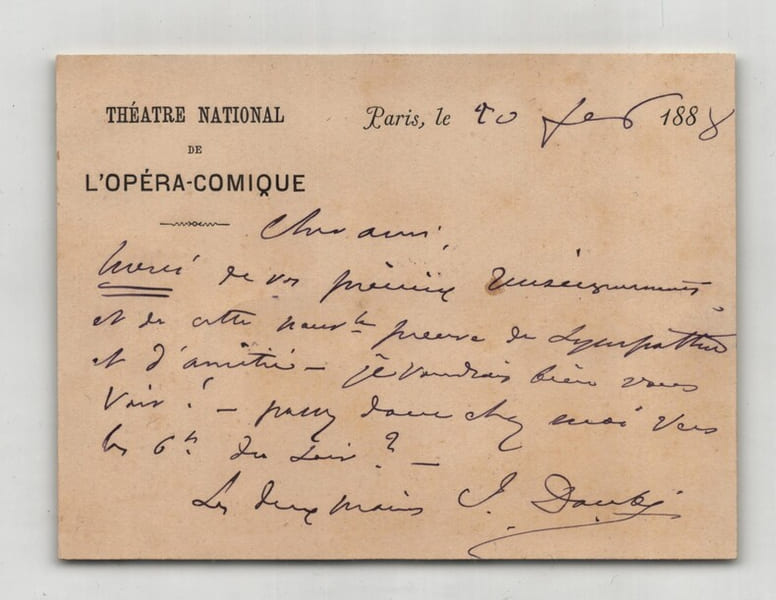 THÉATRE NATIONAL
DE
L'OPÉRA-COMIQUE
Paris, le 20 fev 1888
Cher ami,
Merci de vos précieux renseignements
et de cette nouv^lle preuve de sympathie
et d'amitié – je voudrais bien vous
voir ! – passez donc chez moi vers
les 6^h du soir ? –
Les deux mains J. Danbé